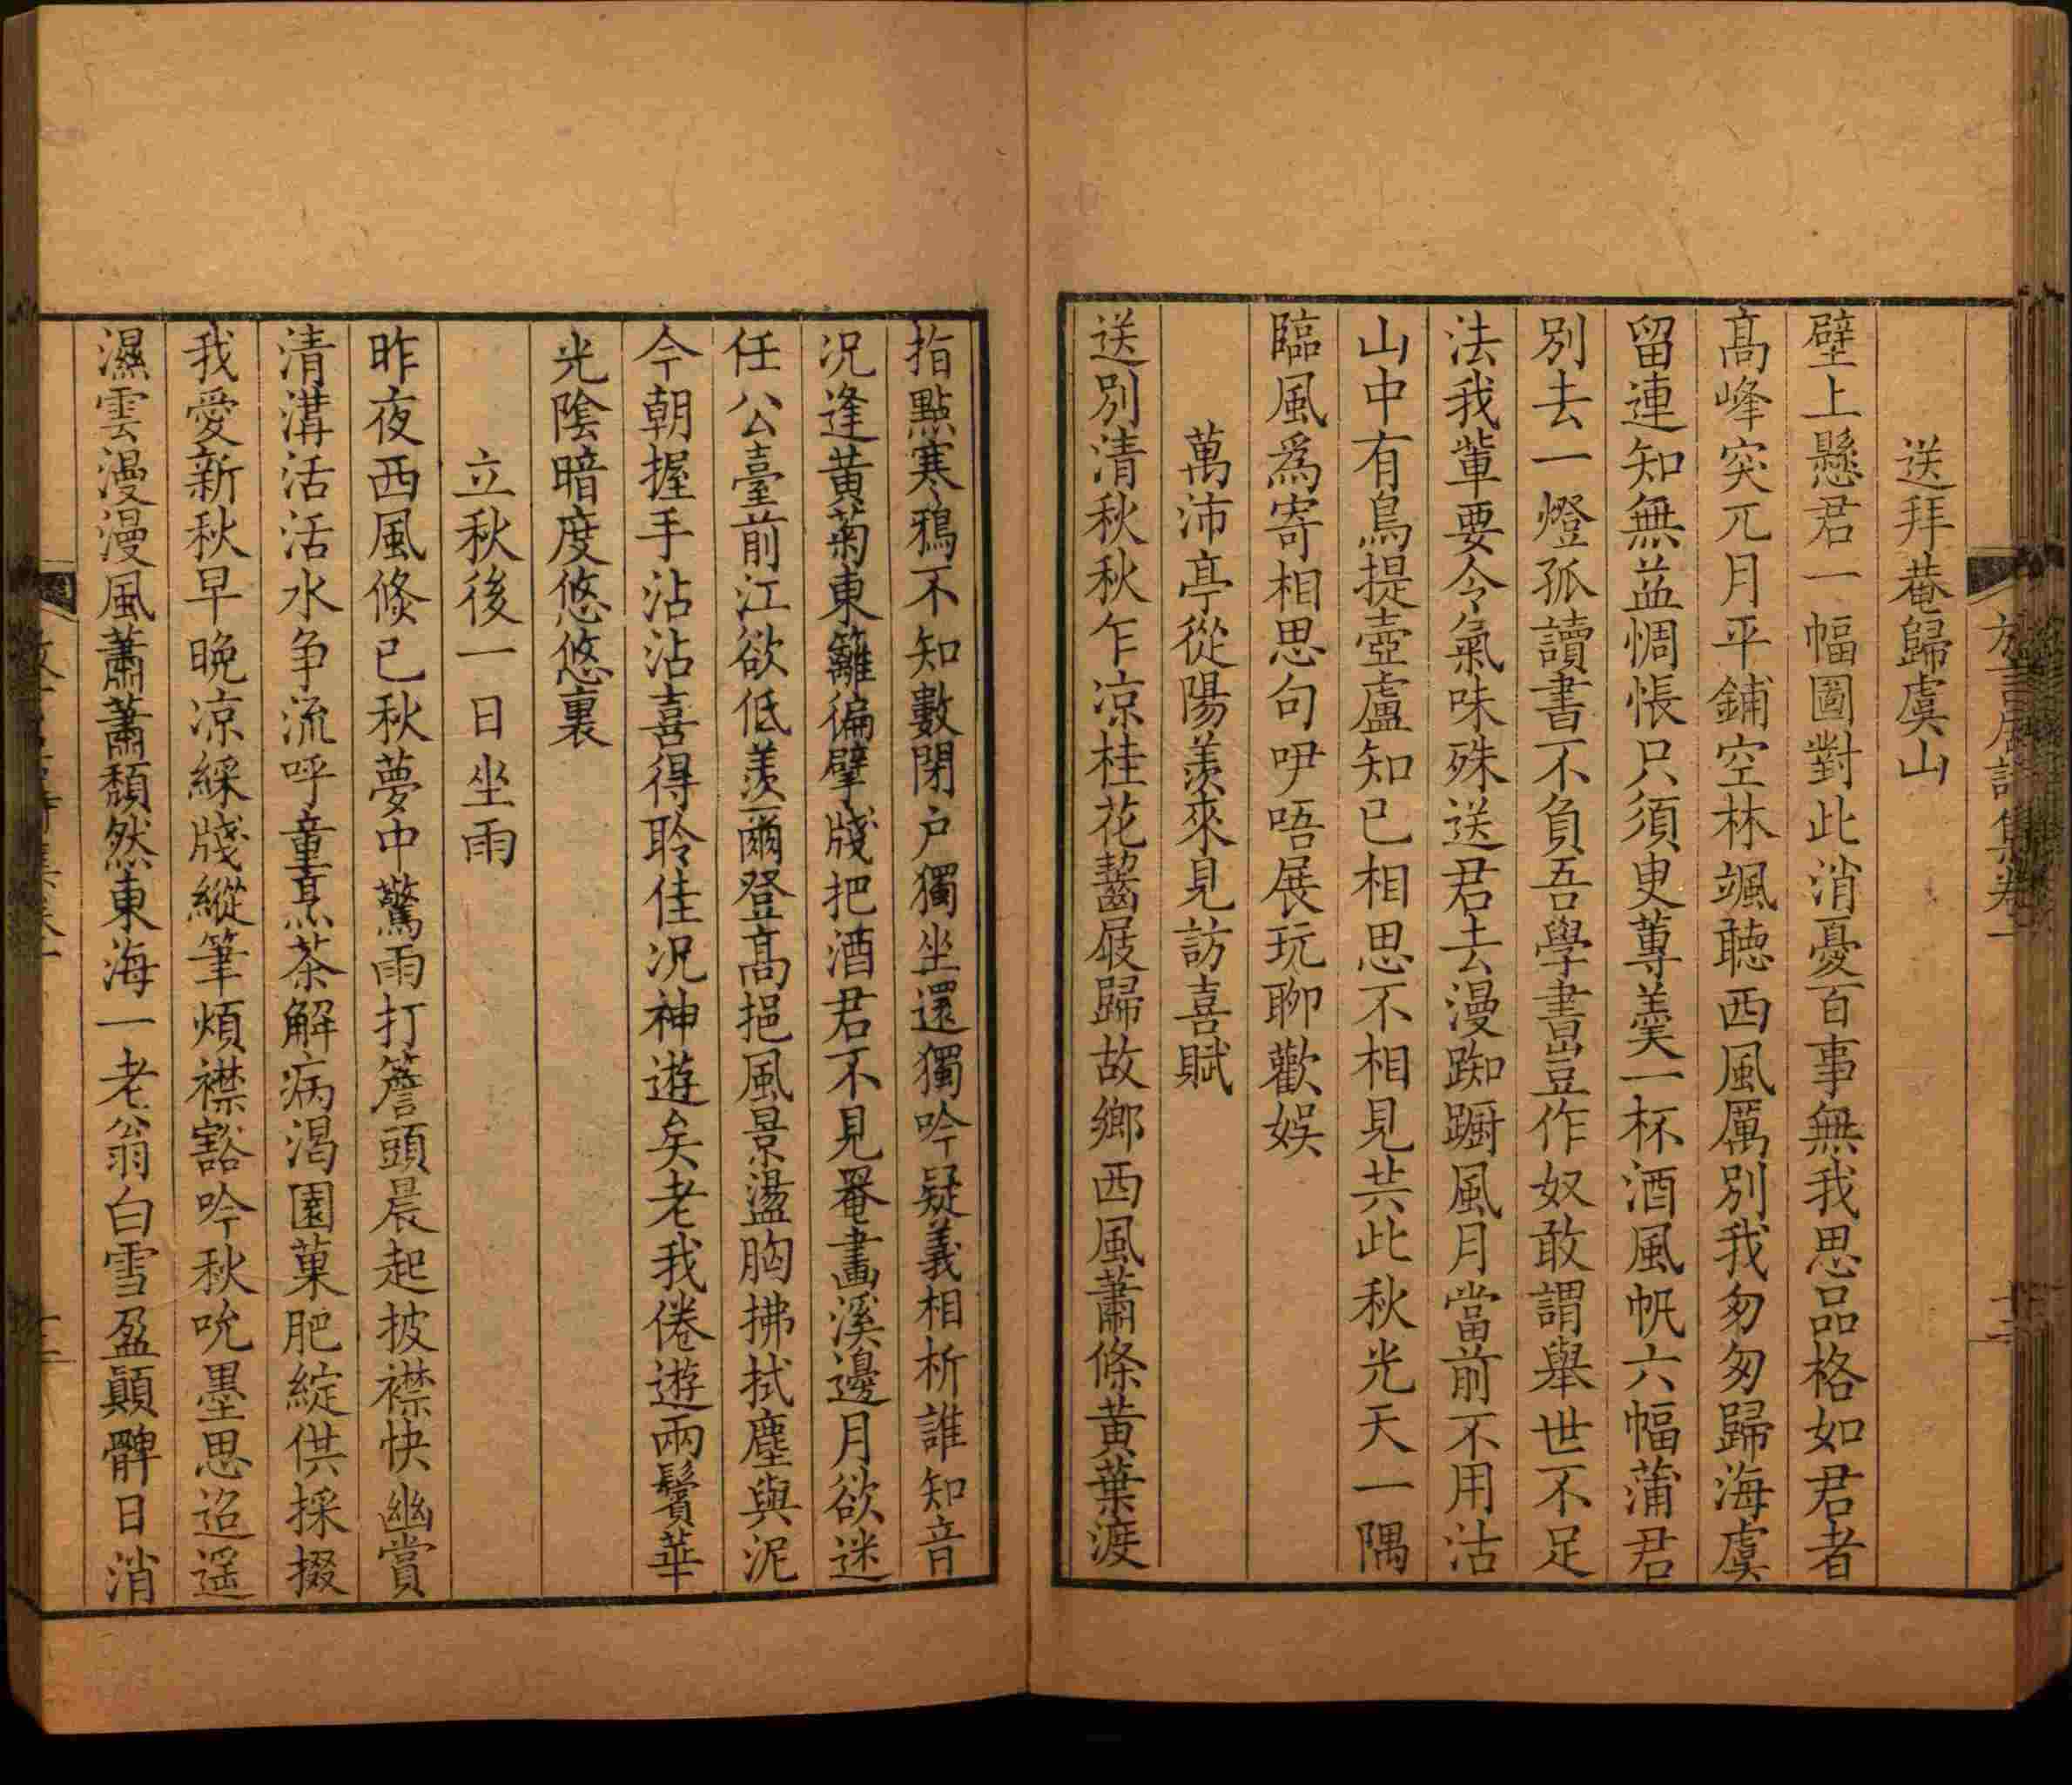 送拜菴歸虞山
壁上懸君一幅圖對此消憂百事無我思品格如君者
高峰突兀月平鋪空林颯聴西風厲別我匆匆歸海虞
留連知無益惆悵只須更蓴羹一杯酒風帆六幅蒲君
別去一燈孤讀書不負吾學書豈作奴敢謂舉世不足
法我輩要令氣味殊送君去漫踟蹰風月當前不用沽
山中有鳥提壺盧知已相思不相見共此秋光天一隅
臨風爲寄相思句吚唔展玩聊歡娱
萬沛亭從陽羨來見訪喜賦
送別清秋秋乍凉桂花齧屐歸故鄉西風蕭條黃葉渡
指點寒鴉不知數閉户獨坐還獨吟疑義相析誰知音
况逢黃菊東籬徧擘牋把酒君不見罨畫溪邊月欲迷
任公臺前江欲低羨爾登高挹風景盪胸拂拭塵與泥
今朝握手沾沾喜得聆佳况神遊矣老我倦遊兩鬢華
光陰暗度悠悠裏
立秋後一日坐雨
昨夜西風倏已秋夢中驚雨打簷頭晨起披襟快幽賞
清溝活活水争流呼童烹茶解病渴園菓肥綻供採掇
我愛新秋早晚凉綵牋縱筆煩襟豁吟秋吮墨思迢遥
濕雲漫漫風蕭蕭頽然東海一老翁白雪盈顛髀日消